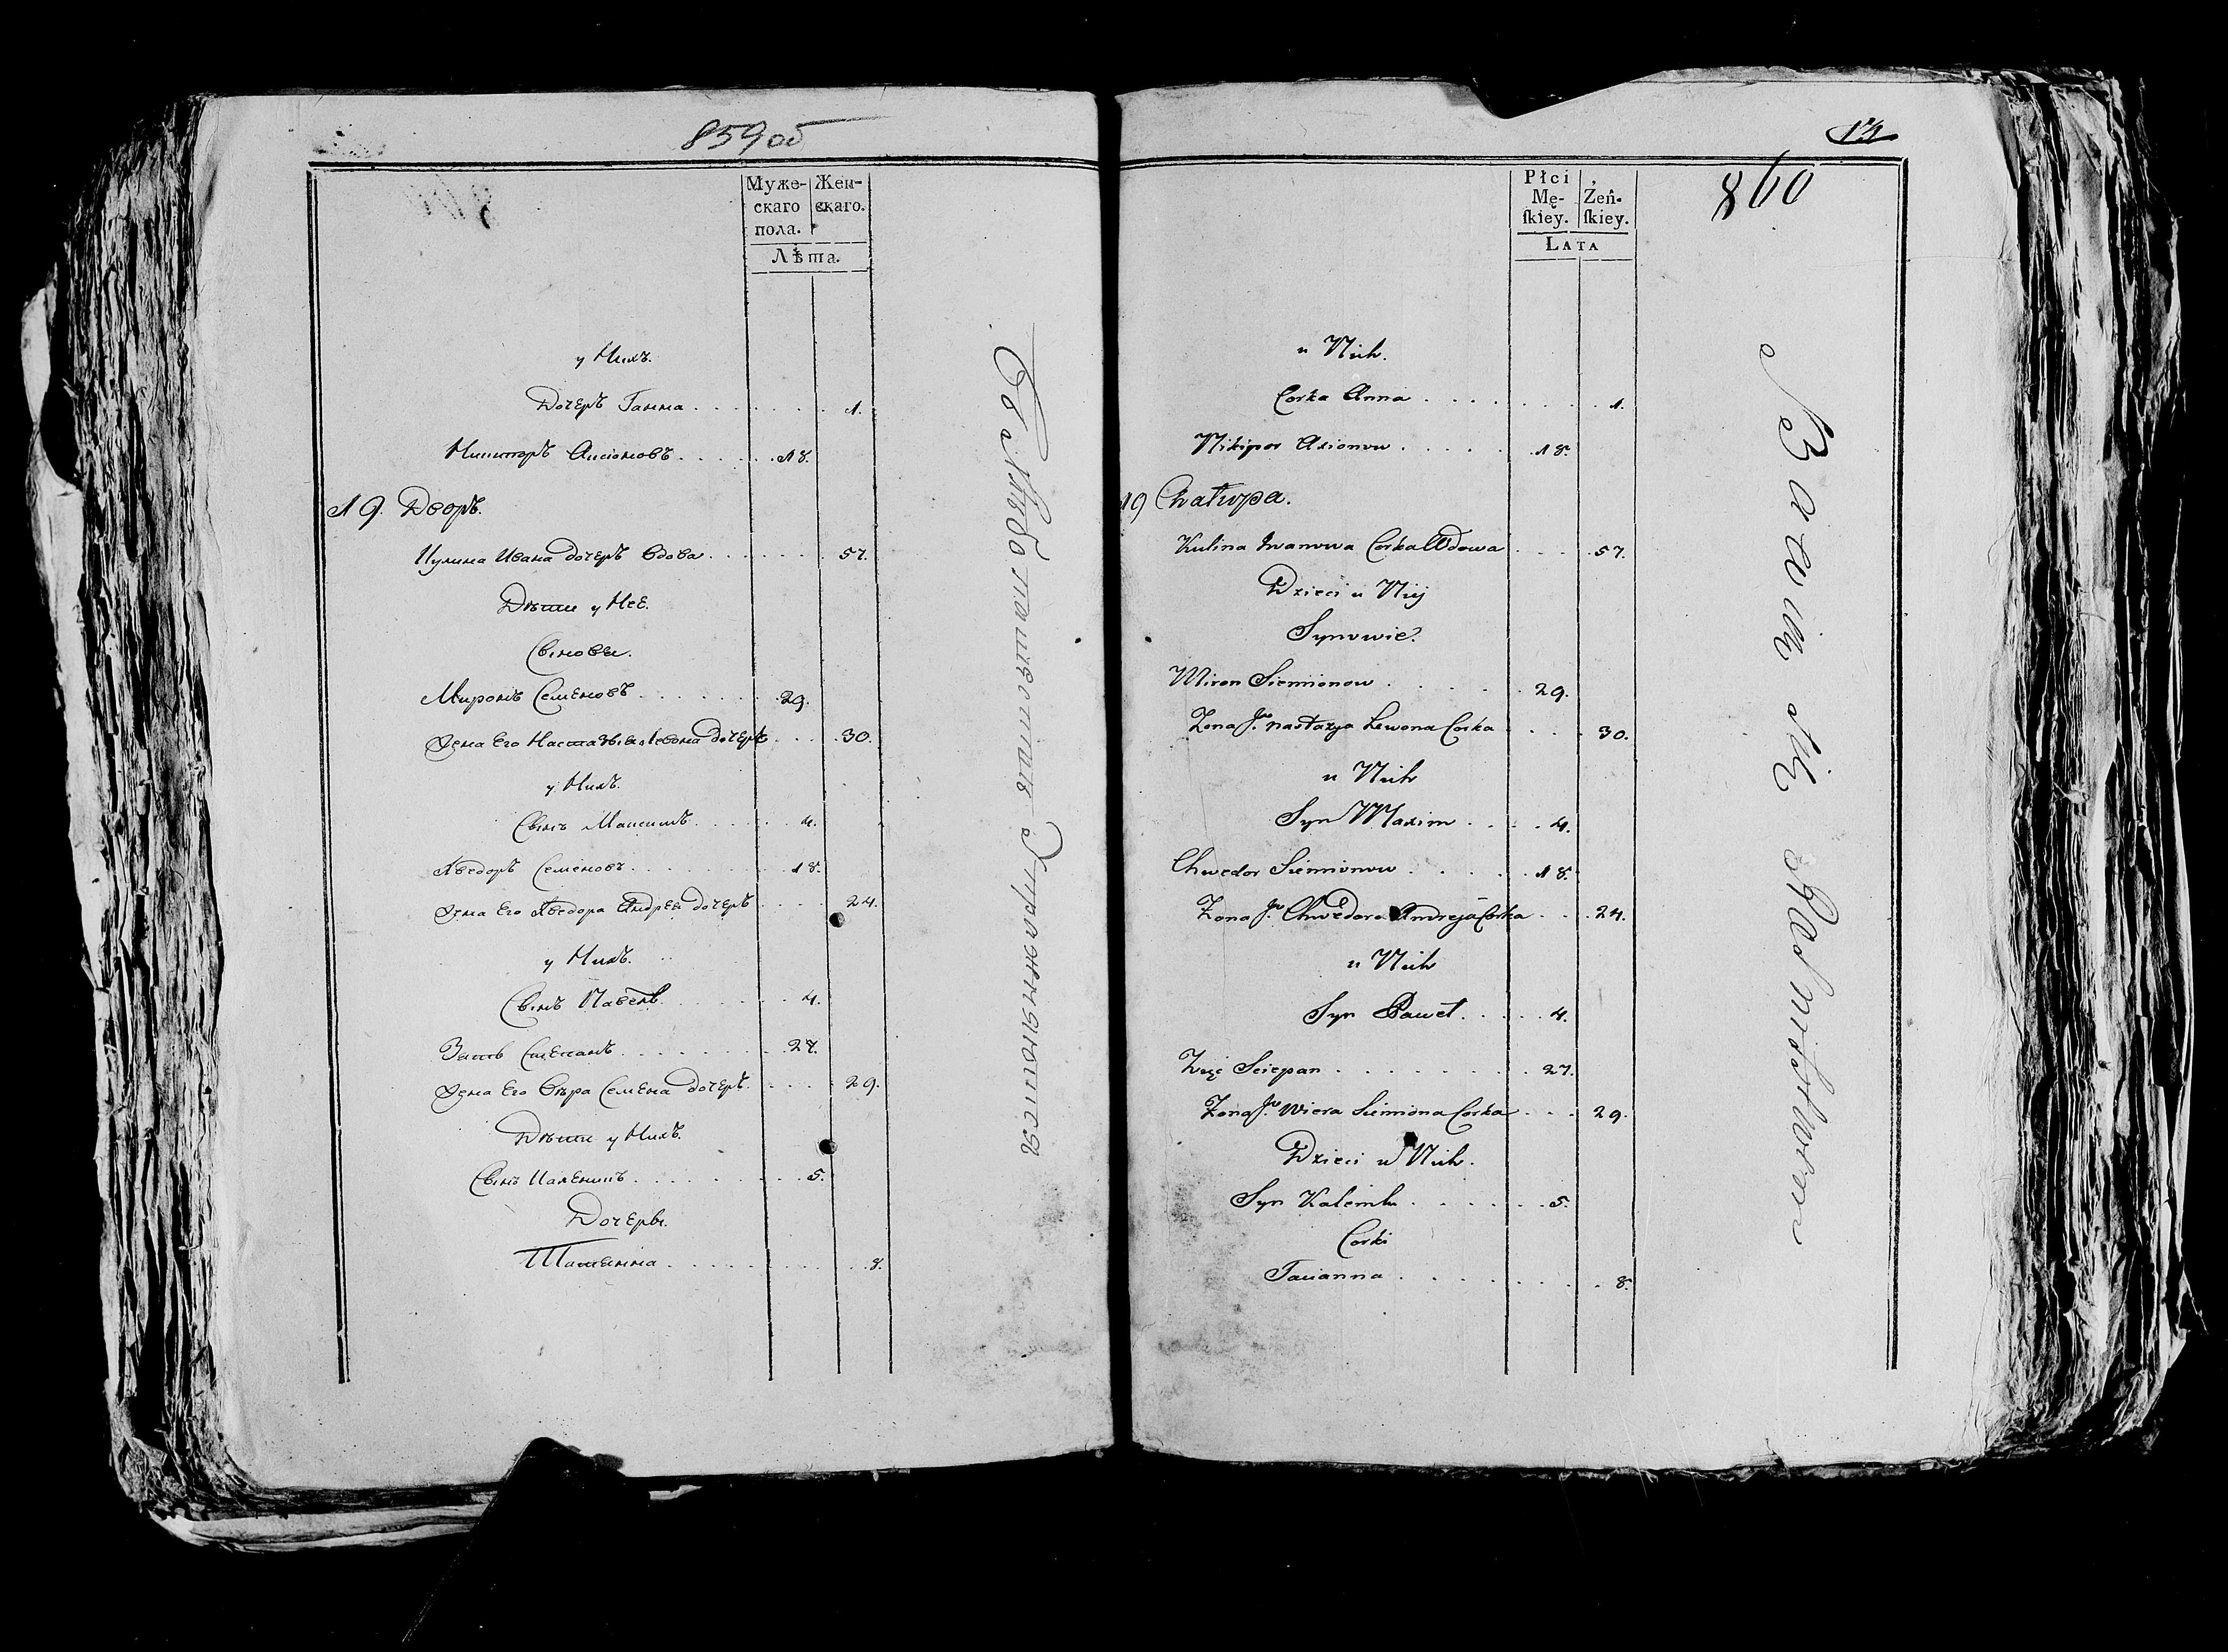 859 об
Муже- Жен-
скаго скаго.
пола.
Лѣта.
у Нихъ.
Дочеръ Ганна . . . . . . . 1.
Никипоръ Аксіоновъ . . . . . 18.
19. Дворъ.
Кулина Ивана дочеръ вдова . . . . . . 57.
Дѣти у Нее.
Сыновы.
Миронъ Семеновъ . . . . . . 29.
Жена Его Настазыя Левона дочеръ . . . 30.
у Нихъ.
Сынъ Максимъ . . . . . 4.
Хведоръ Семеновъ . . . . . . . 18.
Жена Его Хведора Андрея дочеръ . . . . 24.
у Нихъ.
Сынъ Павелъ . . . . . . 4.
Зять Сцепанъ . . . . . . . 27.
Жена Его Вѣра Семена дочеръ . . . . 29.
Дѣти у Нихъ.
Сынъ Каленикъ . . . . . . . 5.
Дочеры.
Тацянна . . . . . . . . . 8.
14
860
Płci
Mę- Żeń-
ſkiey. ſkiey.
LATA
u Nich.
Corka Anna . . . . . . . 1.
Nikipor Axionow . . . . . 18.
19 Chałupa.
Kulina Iwanowa Corka Wdowa . . . . 57.
Dzieci u Niej
Synowie.
Miron Siemionow . . . . . 29.
Zona Jo Nastazya Lewona Corka . . . . 30.
u Nich
Syn Maxim . . . . 4.
Chwedor Siemionow . . . . . 18.
Zona Jo Chwedora Andreja Corka . . . 24.
u Nich
Syn Paweł . . . . . 4.
Zięć Sciepan . . . . . . . . 27.
Zona Jo Wiera Siemiona Corka . . . 29.
Dzieci u Nich.
Syn Kalenik . . . . . . 5.
Corki
Tacianna . . . . . . . . 8.